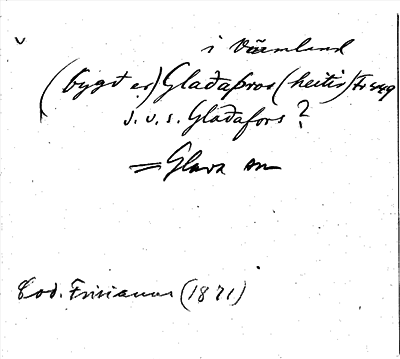 i Värmland
(bygt er) Glaðaþros (heitir) Fr 449
J. v. s. Glaðafors?
= Glava sn
Cod. Frisianus (1871)